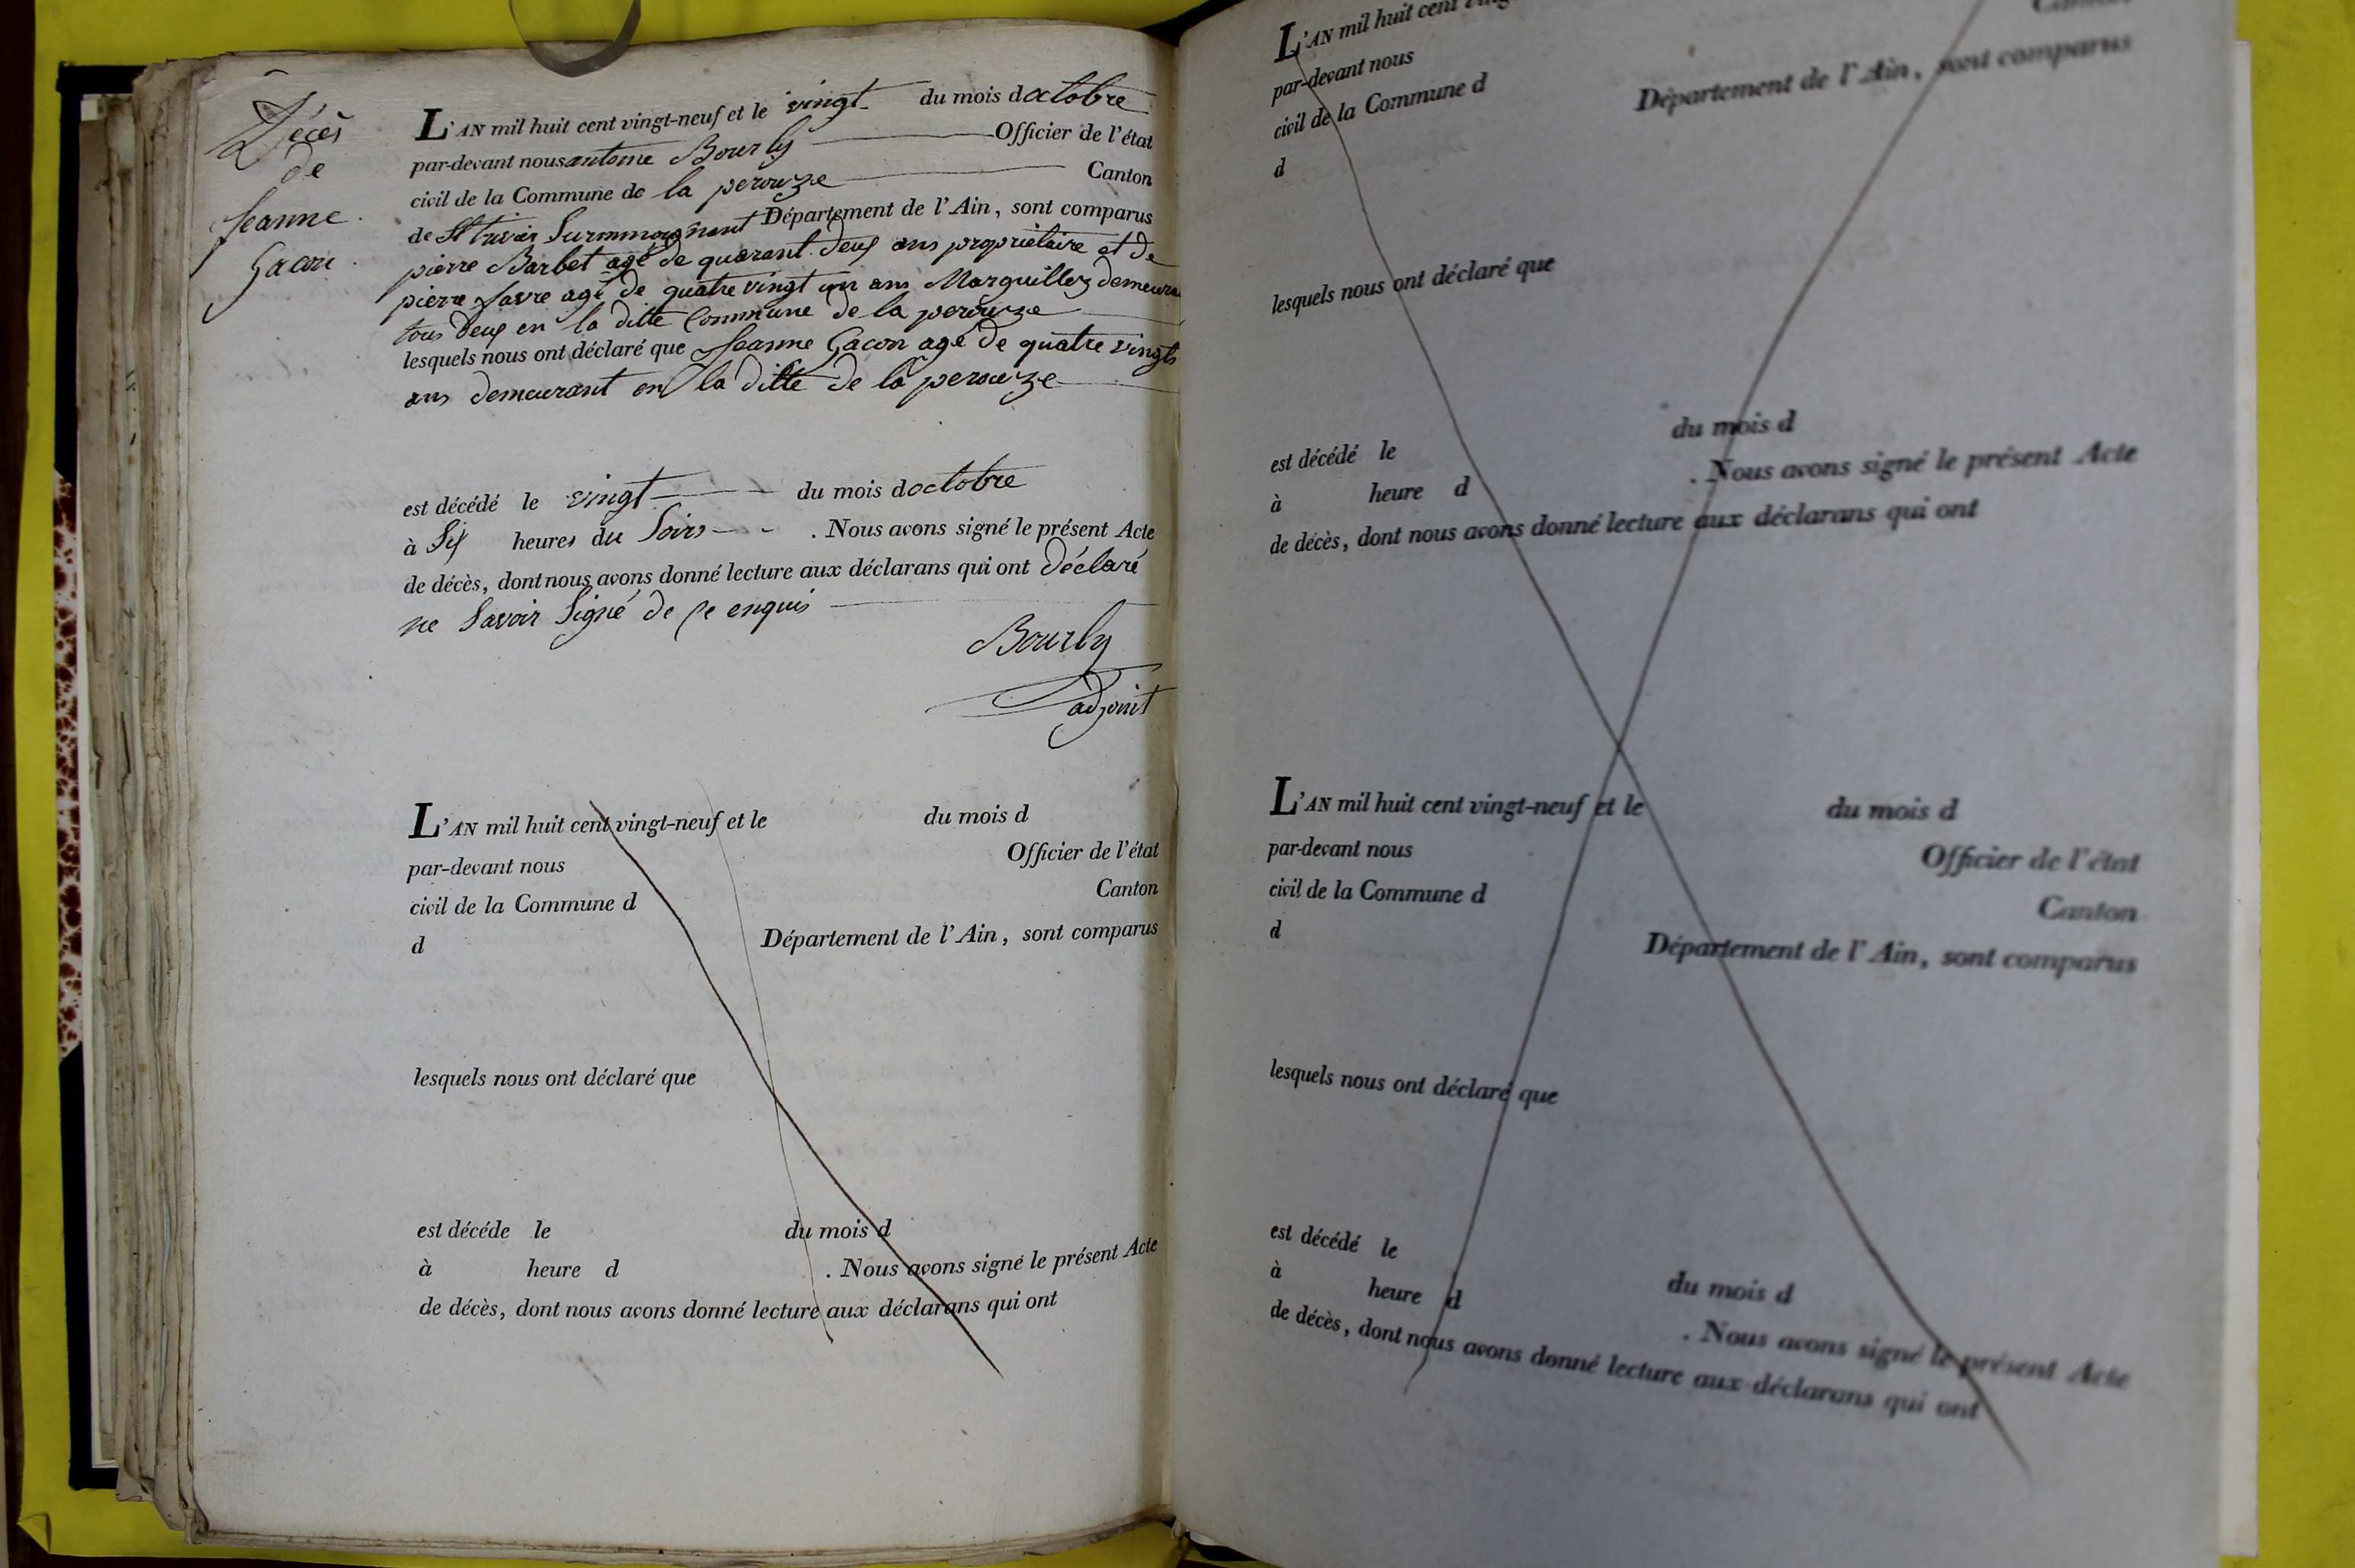 Décès
de
Jeanne
Gacon
L'AN mil huit cent vingt-neuf et le vingt du mois doctobre
par-devant nous antoine Bourly Officier de l'état
civil de la Commune de la perouze Canton
de St trivier Surmmoignant Département de l'Ain, sont comparus
pierre Barbet agé de quarant deux ans propriétaire et de
pierre favre agé de quatre vingt un ans Marguillez demeura
tous deux en la ditte Commune de la perouze
lesquels nous ont déclaré que Jeanne Gacon agé de quatre vingts
ans demeurant en la ditte de la perouze
est décédé le vingt du mois doctobre
à Six heures du Soirs . Nous avons signé le présent Acte
de décès, dont nous avons donné lecture aux déclarans qui ont déclaré
ne Savoir Signé de ce enquis
Bourly
adjoint
L'AN mil huit cent vingt-neuf et le du mois d
par-devant nous Officier de l'état
civil de la Commune d Canton
d Département de l'Ain, sont comparus
lesquels nous ont déclaré que
est décéde le du mois d
à heure d . Nous avons signé le présent Acte
de décès, dont nous avons donné lecture aux déclarans qui ont
L'AN mil huit cent
par-devant nous
civil de la Commune d Canton
d Département de l'Ain, sont comparus
lesquels nous ont déclaré que
est décédé le du mois d
à heure d . Nous avons signé le présent Acte
de décès, dont nous avons donné lecture aux déclarans qui ont
L'AN mil huit cent vingt-neuf et le du mois d
par-devant nous Officier de l'état
civil de la Commune d Canton
d Département de l'Ain, sont comparus
lesquels nous ont déclaré que
est décédé le du mois d
à heure d . Nous avons signé le présent Acte
de décès, dont nous avons donné lecture aux déclarans qui ont